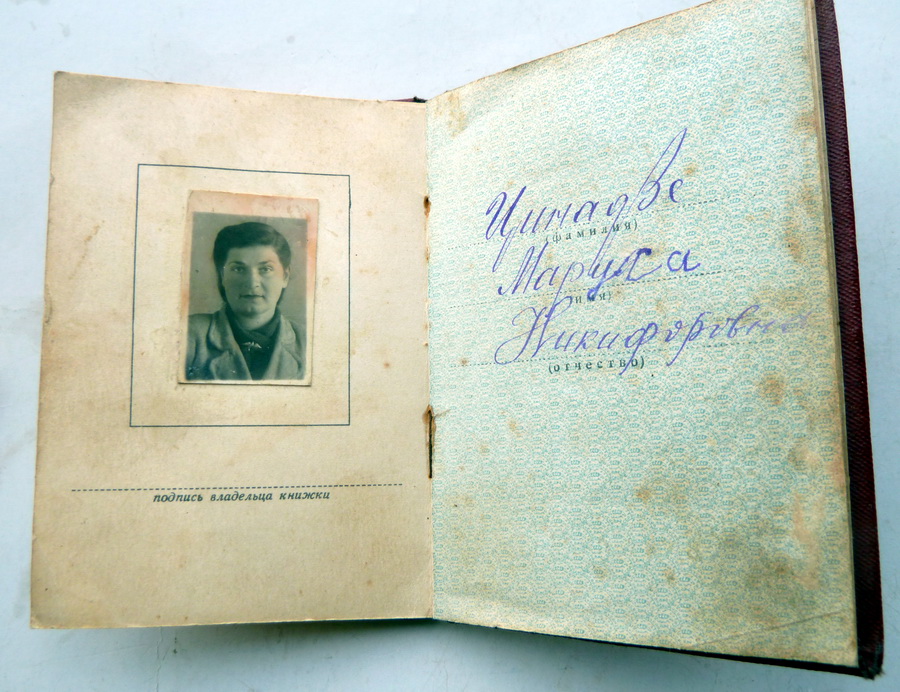 подпись владельца книжки
Цинадзе
(фамилия)
Маруха
(имя)
Никифоровна
(отчество)